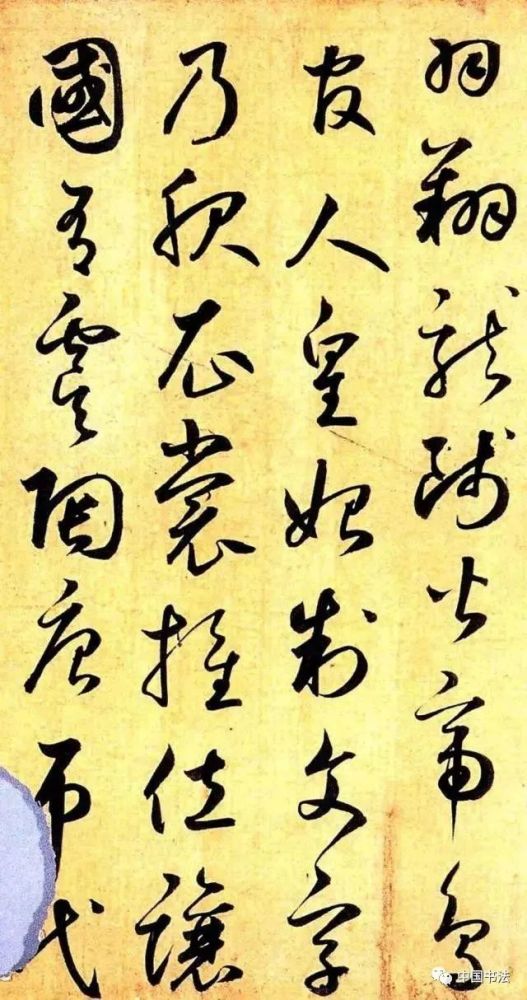 羽翔龍師火帝鳥
官人皇始制文字
乃服衣裳推位讓
國有虞陶唐吊民
中国书法